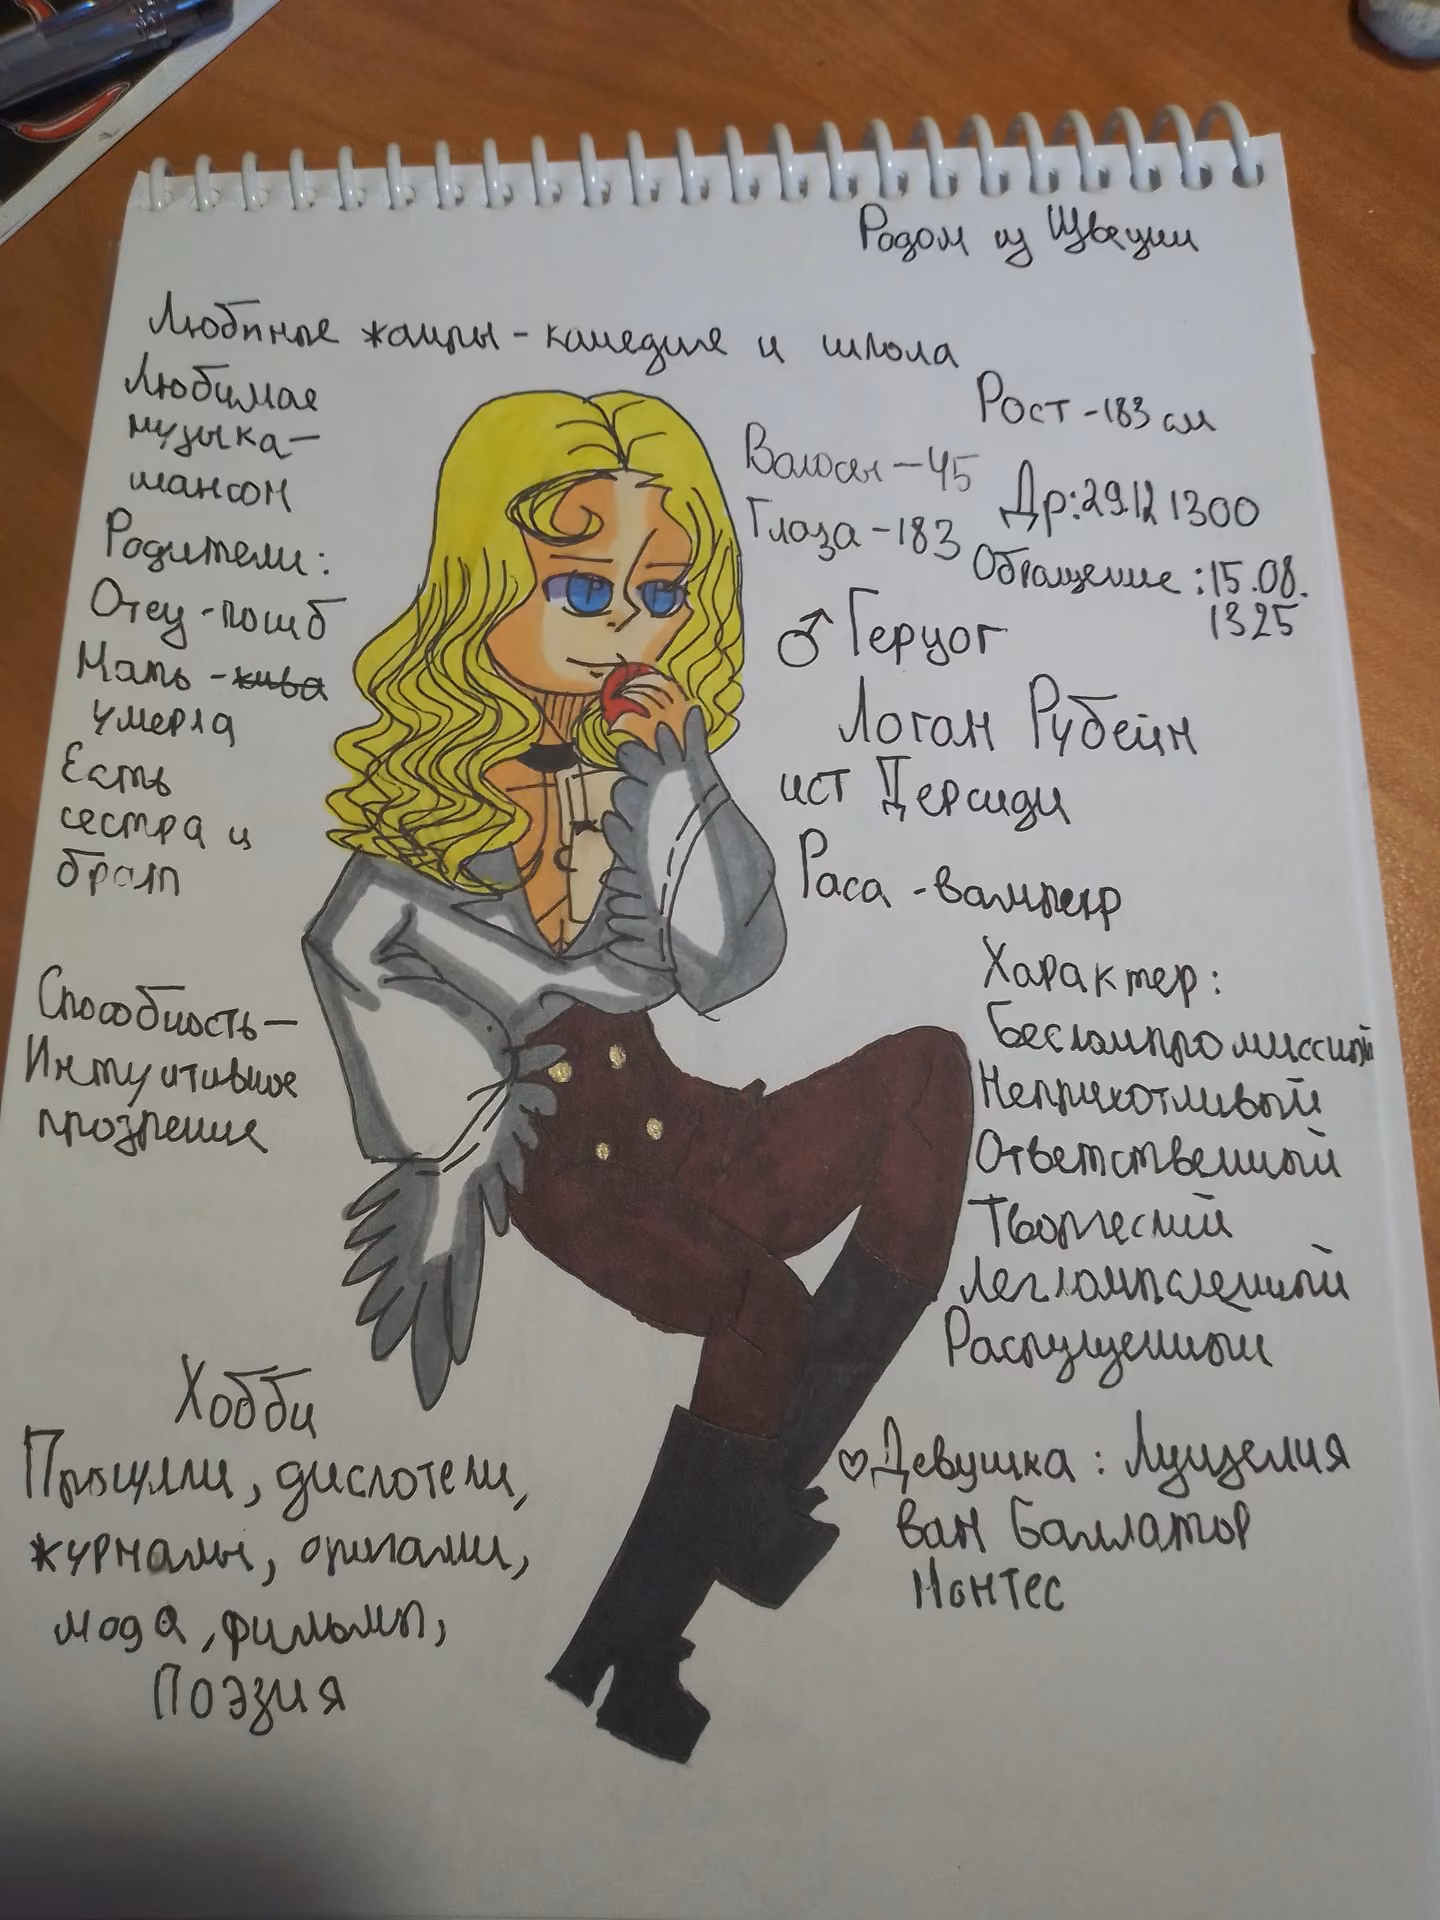 Родом из Швеции
Любимые жанры - камедия и школа
Любимая
музыка -
шансон
Родители:
Отец - погиб
Мать - жива
умерла
Есть
сестра и
брат
Способность -
Интуитивное
прозрение
Хобби
Прогулки, дискотеки,
журналы, оригами,
мода, фильмы,
Поэзия
Рост - 183 см
Волосы - 45
Глаза - 183
Др: 29.12 1300
Обращение: 15.08.
1325
♂ Герцог
Логан Рубейн
ист Дерсиди
Раса - вампир
Характер:
Бескомпромиссный
Неприхотливый
Ответственный
Творческий
Легкомысленный
Распущенный
♡ Девушка: Луцелия
ван Баллатор
Монтес